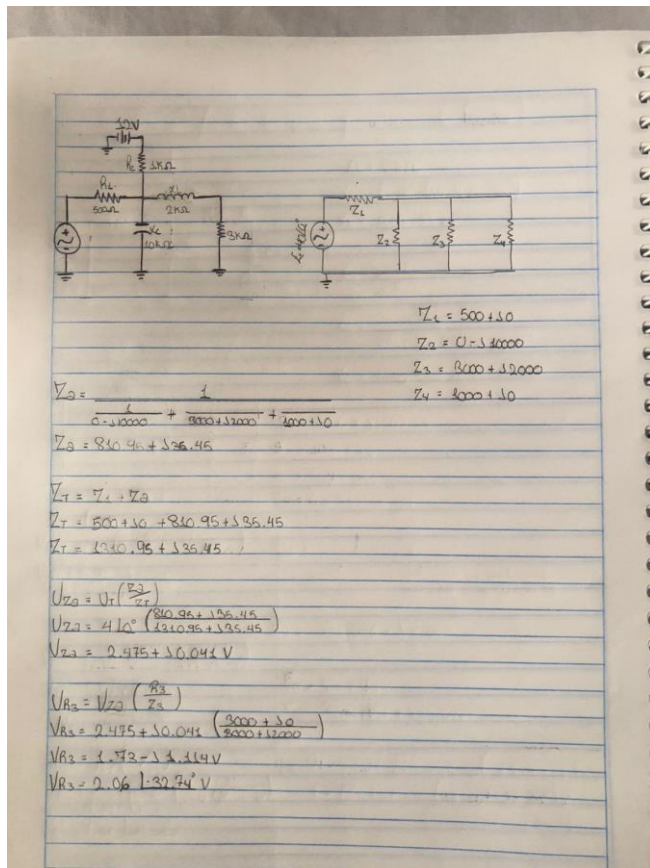 12V
R2 1KΩ
R1
500Ω
2KΩ
Xc
10KΩ
3KΩ
Z1
Z2
Z3
Z4
Z1 = 500 + J0
Z2 = 0 - J10000
Z3 = 3000 + J2000
Z4 = 1000 + J0
Za = 1 / (1/(0-J10000) + 1/(3000+J2000) + 1/(1000+J0))
Za = 810.95 + J35.45
ZT = Z1 + Za
ZT = 500 + J0 + 810.95 + J35.45
ZT = 1310.95 + J35.45
VZa = VT (Za/ZT)
VZa = 4∠0° (810.95 + J35.45 / 1310.95 + J35.45)
VZa = 2.475 + J0.041 V
VR3 = VZa (R3/Z3)
VR3 = 2.475 + J0.041 (3000 + J0 / 3000 + J2000)
VR3 = 1.73 - J1.114 V
VR3 = 2.06 ∠-32.74° V